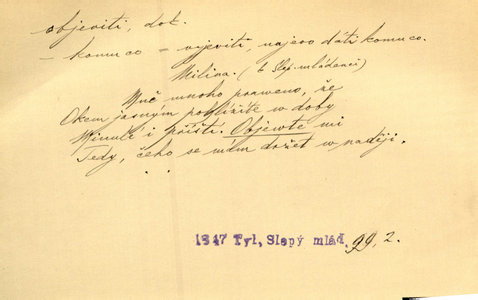 objeviti, dok.
– komu co = vyjeviti, najevo dáti komu co.
Milina. (k Slep. mládenci)
Mně mnoho praweno, že
Okem jasným pohlížíte w doby
Minulé i příští. Objewte mi
Tedy, čeho se mám držet w naději.
1847 Tyl, Slepý mlád. 99, 2.